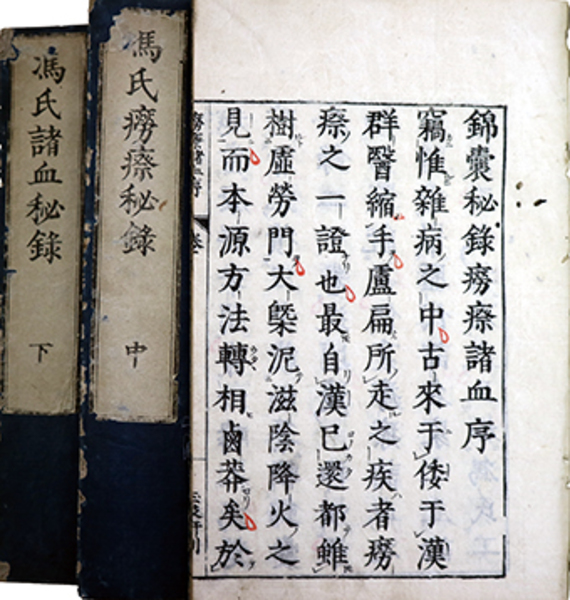 錦囊秘錄癆瘵諸血序
竊惟雜病之中古來于倭于漢
群醫縮手盧扁所走之疾者癆
瘵之一證也最自漢已還都雖
樹虛勞門大槩泥滋陰降火之
見而本源方法轉相鹵莽矣於
馮氏癆瘵秘錄 中
馮氏諸血秘錄 下